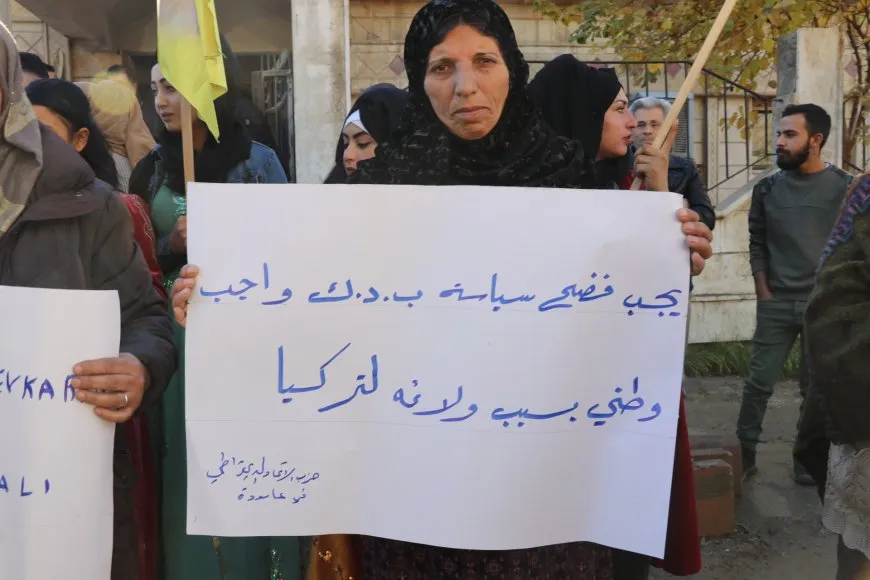 يجب فضح سياسة ب.د.ك واجب
وطني بسبب ولائه لتركيا
حزب الاتحاد الديمقراطي
في عامودة
EVKAR
ALI